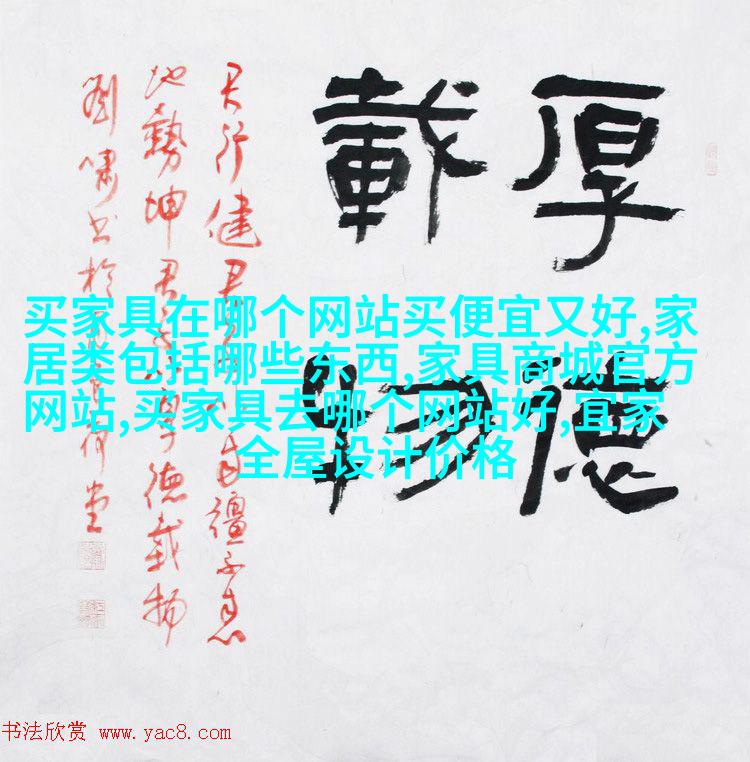 厚德
載物
天行健君子以自彊不息
地勢坤君子以厚德載物
劉嘯书於
买家具在哪个网站买便宜又好,家
居类包括哪些东西,家具商城官方
网站,买家具去哪个网站好,宜家
全屋设计价格
书法欣赏 www.yac8.com